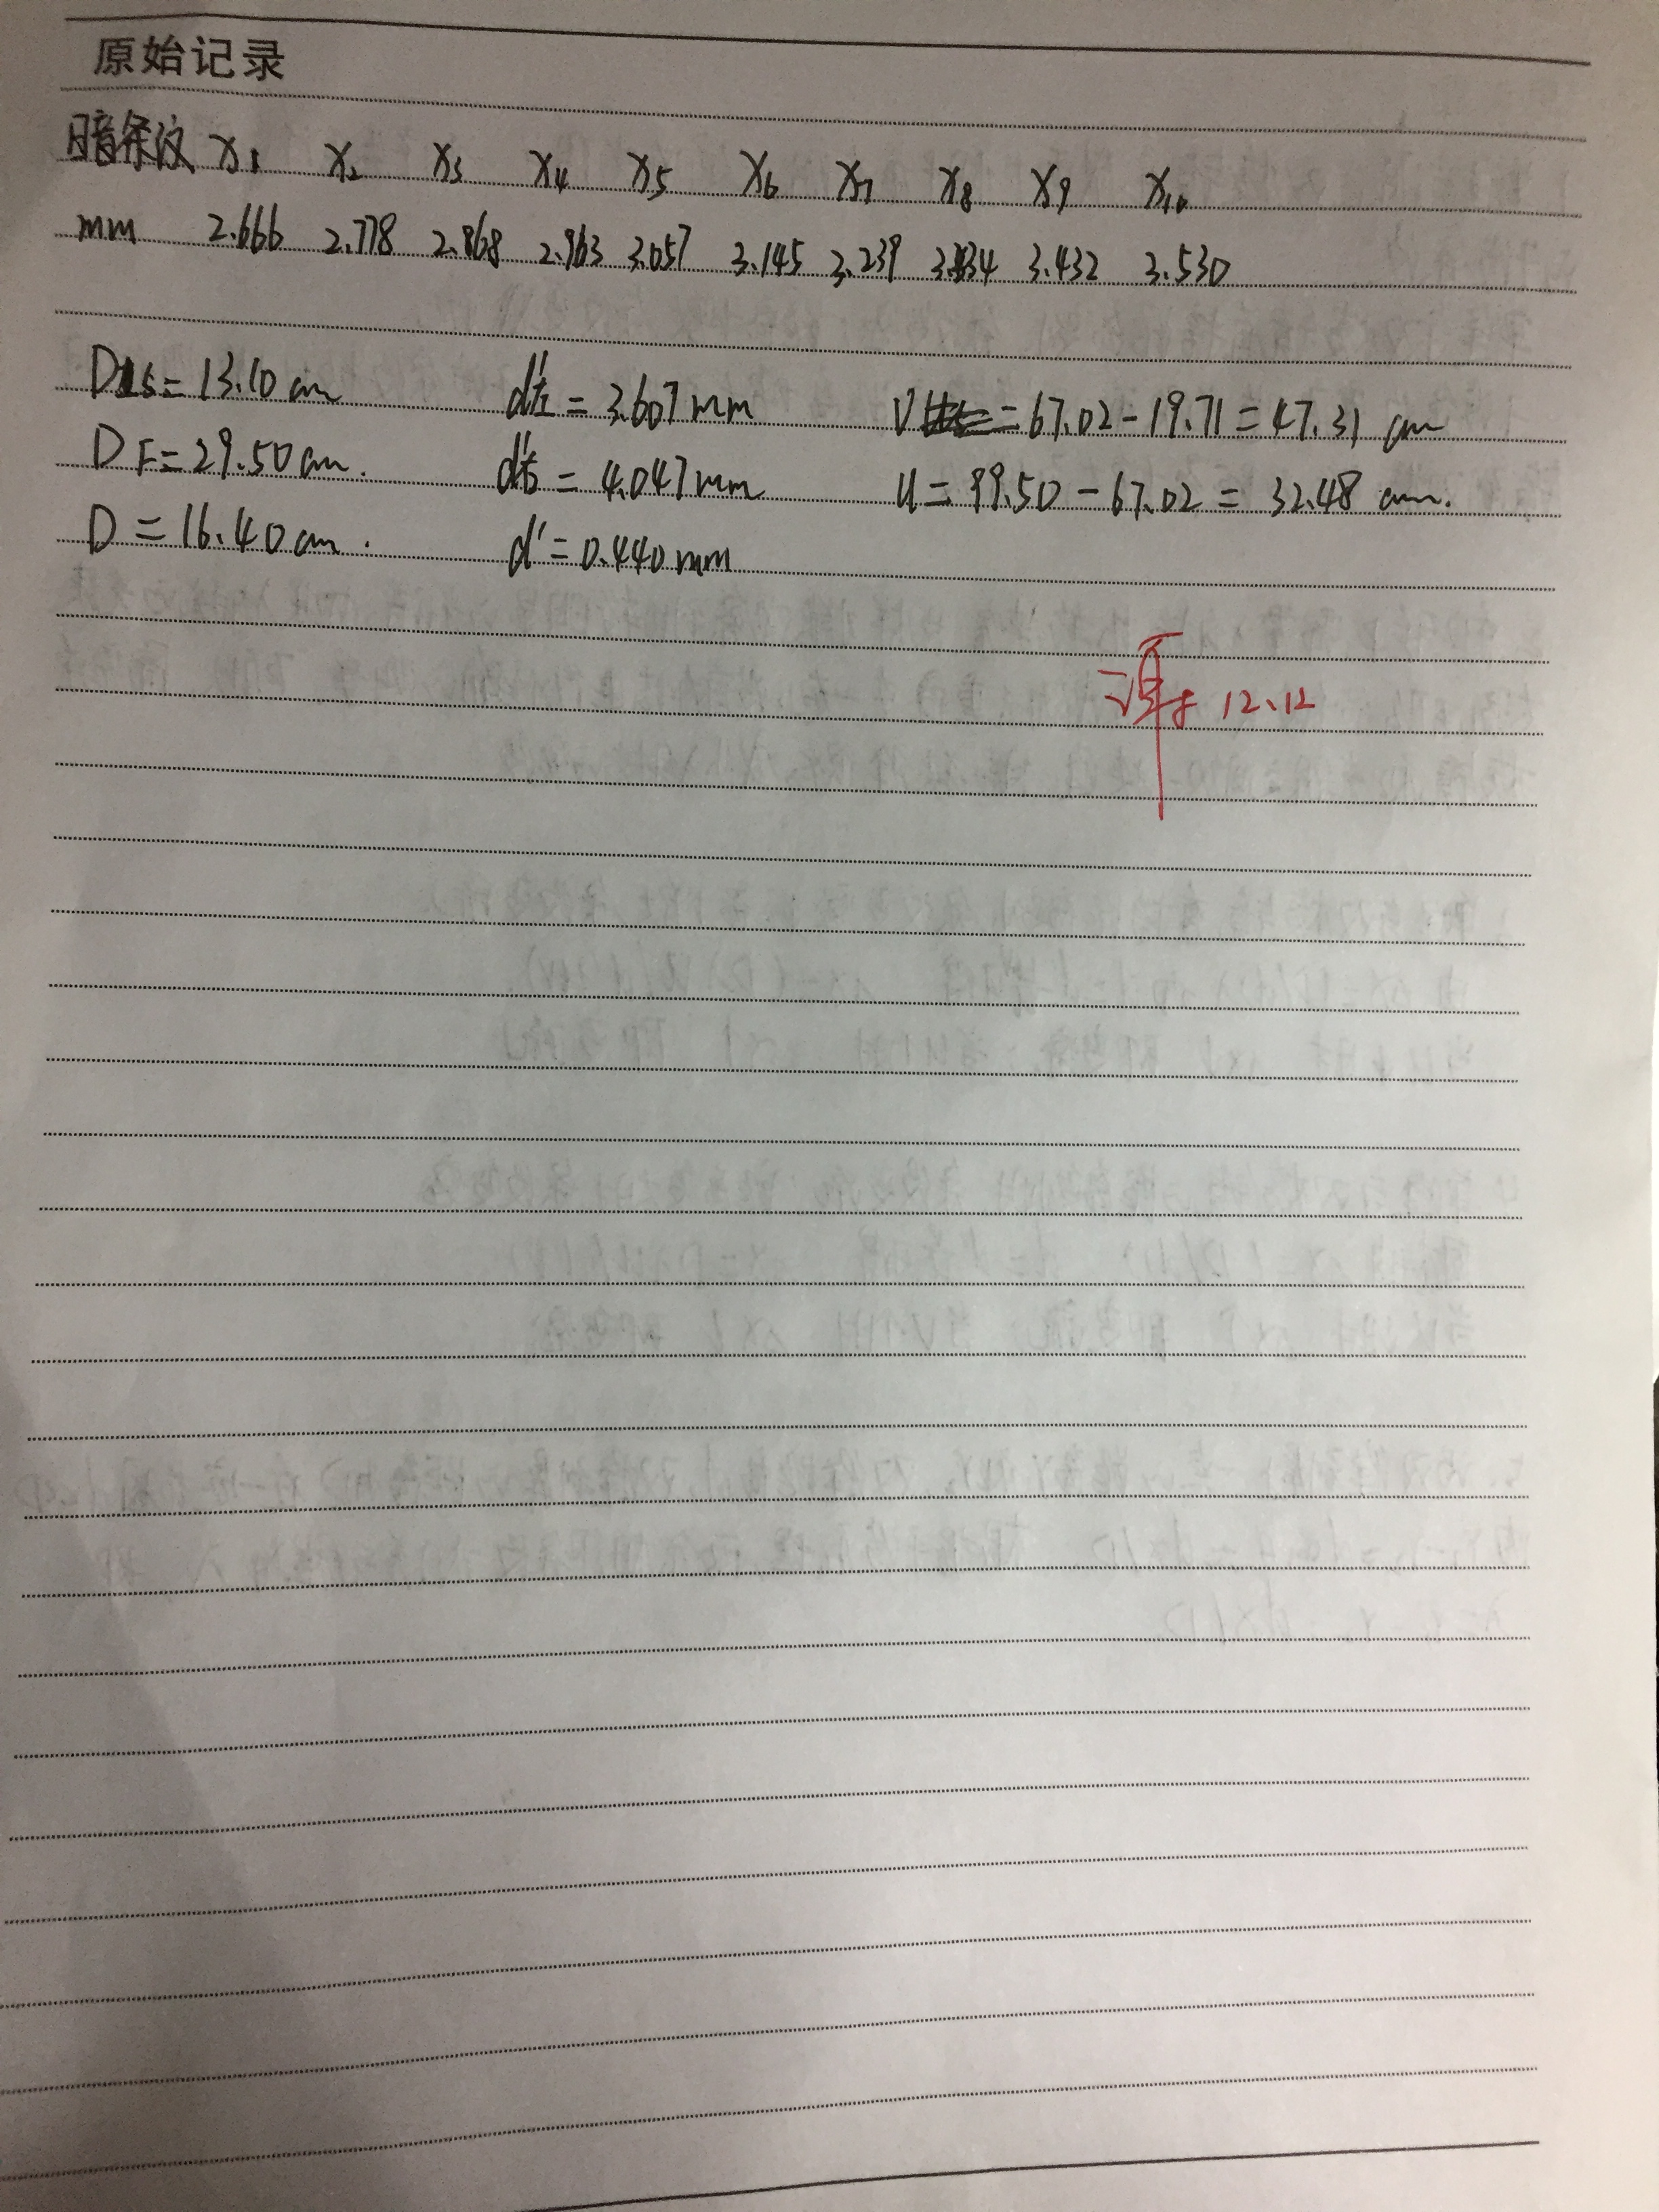 原始记录
暗条纹 x1 x2 x3 x4 x5 x6 x7 x8 x9 x10
mm 2.666 2.778 2.868 2.963 3.057 3.145 3.239 3.334 3.432 3.530
= 13.10 cm d'左 = 3.607 mm V = 67.02 - 19.71 = 47.31 cm
DF = 29.50 cm. d'右 = 4.047 mm u = 99.50 - 67.02 = 32.48 cm.
D = 16.40 cm. d' = 0.440 mm
12.12